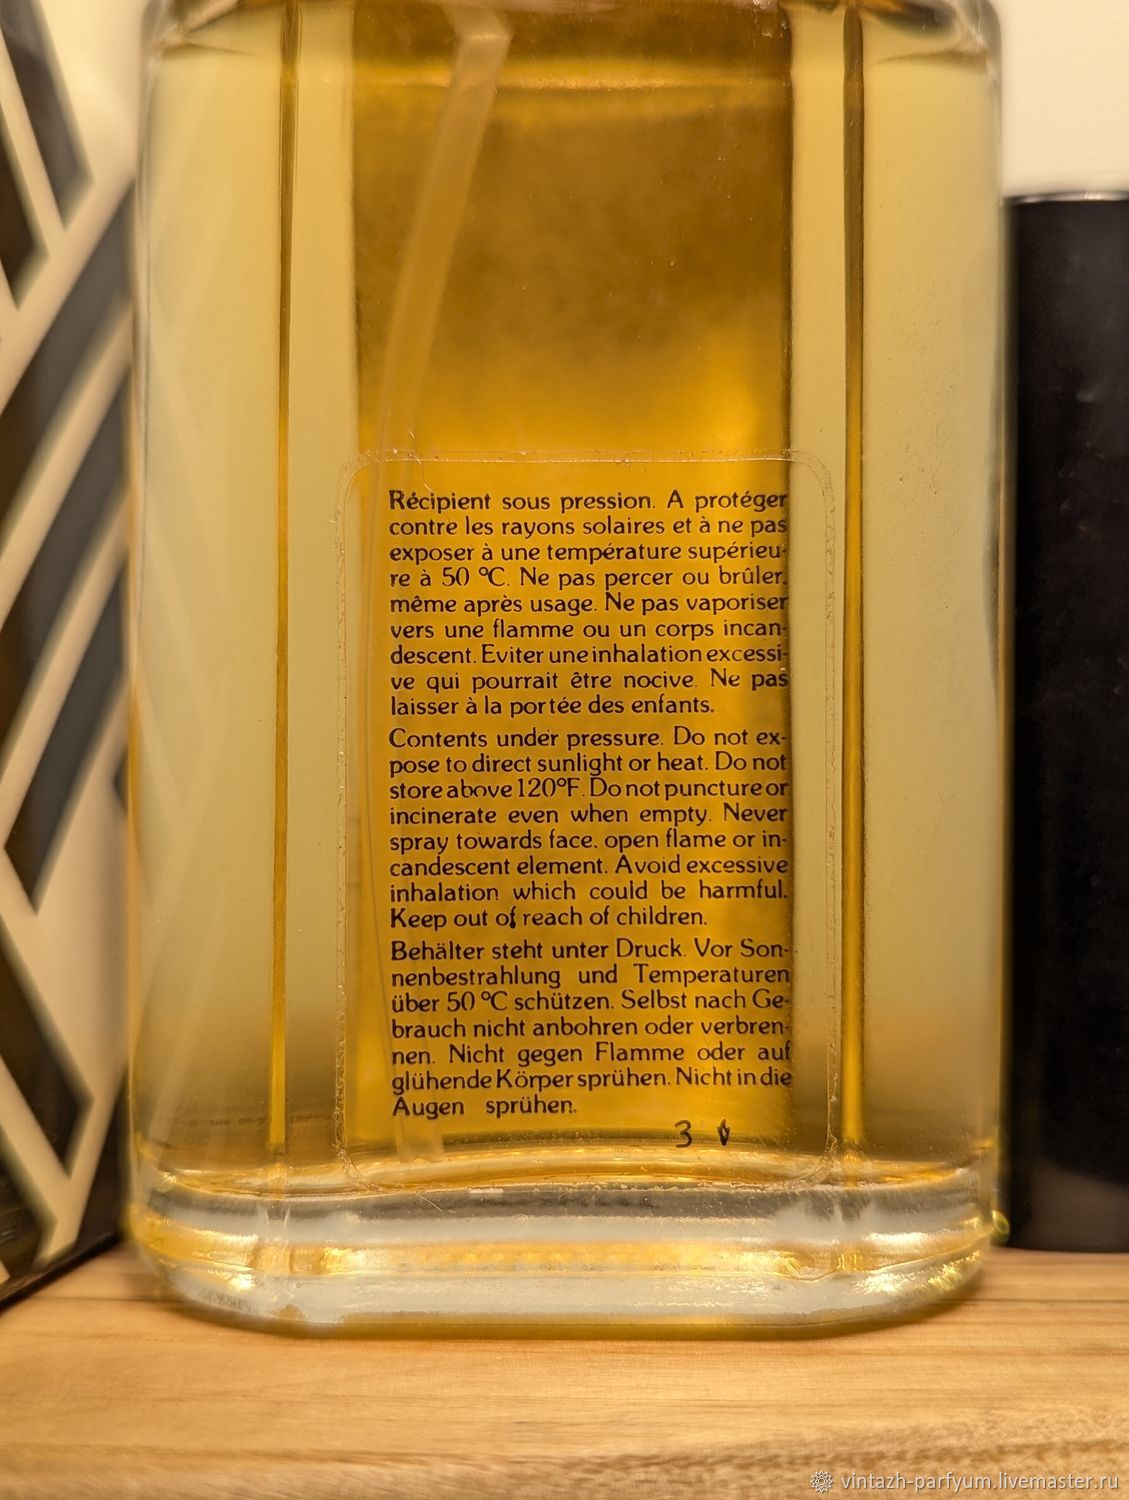 Récipient sous pression. A protéger
contre les rayons solaires et à ne pas
exposer à une température supérieu-
re à 50 °C. Ne pas percer ou brûler,
même après usage. Ne pas vaporiser
vers une flamme ou un corps incan-
descent. Eviter une inhalation excessi-
ve qui pourrait être nocive. Ne pas
laisser à la portée des enfants.
Contents under pressure. Do not ex-
pose to direct sunlight or heat. Do not
store above 120°F. Do not puncture or
incinerate even when empty. Never
spray towards face, open flame or in-
candescent element. Avoid excessive
inhalation which could be harmful.
Keep out of reach of children.
Behälter steht unter Druck. Vor Son-
nenbestrahlung und Temperaturen
über 50 °C schützen. Selbst nach Ge-
brauch nicht anbohren oder verbren-
nen. Nicht gegen Flamme oder auf
glühende Körper sprühen. Nicht in die
Augen sprühen.
3
vintazh-parfyum.livemaster.ru